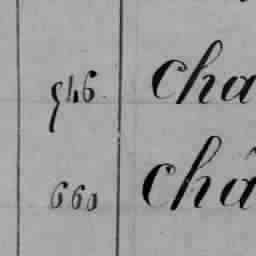 546 cha
660 châ